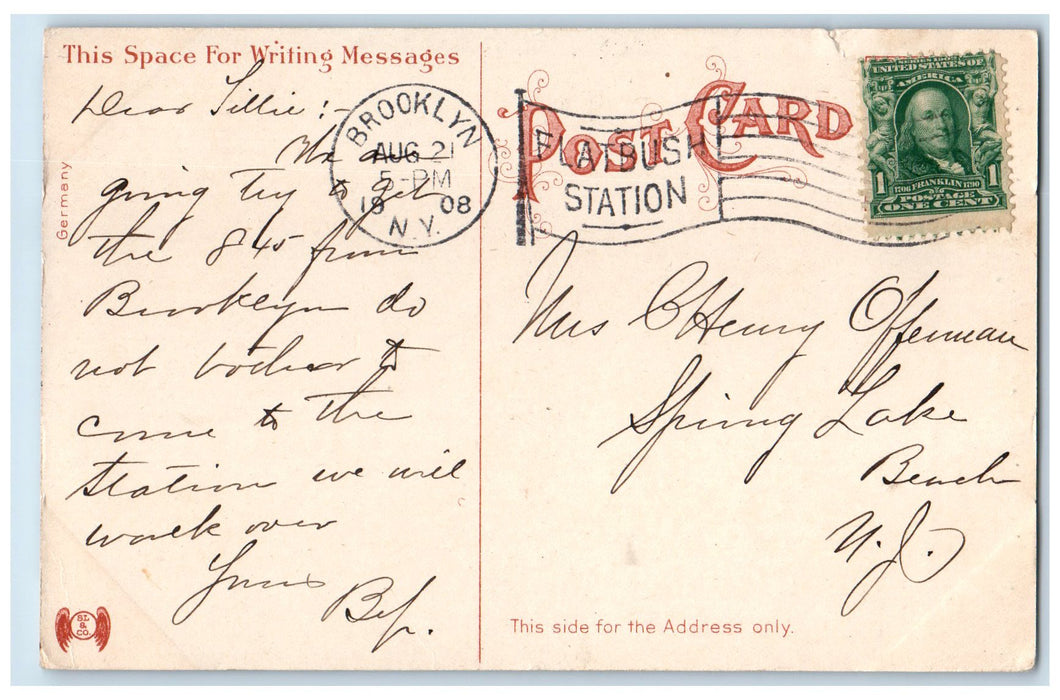 This Space For Writing Messages
Germany
Dear Tillie:-
We are
going try to get
the 8 45 from
Brooklyn do
not bother to
come to the
station we will
walk over
Yours
BL
&
CO.
BROOKLYN
AUG 21
5-PM
19 08
N.Y.
FLATBUSH
STATION
POST CARD
SERIES 1902
UNITED STATES OF
AMERICA
1
1706 FRANKLIN 1790
POSTAGE
ONE CENT
Mrs C Henry Offerman
Spring Lake
Beach
N.J.
This side for the Address only.